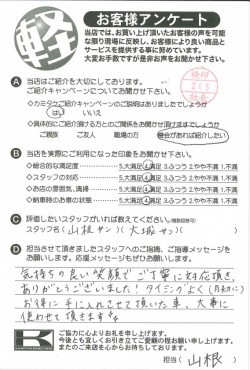 軽
お客様アンケート
当店では、お買い上げ頂いたお客様の声を可能
な限り現場に反映し、お客様により良い商品と
サービスを提供する事に努めています。
大変お手数ですが是非お声をお聞かせ下さい。
A 当店はご紹介を大切にしております。
ご紹介キャンペーンについてお聞かせ下さい。
・カミタケご紹介キャンペーンのご説明はありましたでしょうか
はい いいえ
・具体的にご紹介頂ける方とのご関係をお聞かせ頂けますでしょうか
ご親族 ご友人 職場の方 機会があれば紹介したい
B 当店を実際にご利用になった印象をお聞かせ下さい。
◇総合的な満足度 5.大満足 4.満足 3.ふつう 2.やや不満 1.不満
◇スタッフの対応 5.大満足 4.満足 3.ふつう 2.やや不満 1.不満
◇お店の雰囲気、清掃 5.大満足 4.満足 3.ふつう 2.やや不満 1.不満
◇納車時のお車の状態 5.大満足 4.満足 3.ふつう 2.やや不満 1.不満
C 評価したいスタッフがいれば教えてください。(複数回答可)
スタッフ名(山根サン)(大城サン)(
D 担当させて頂きましたスタッフへのご指摘、ご指導メッセージを
お願いします。応援メッセージもお願いします。
気持ちの良い笑顔でご丁寧に対応頂き、
ありがとうございました!タイミングよく
お得に手に入れさせて頂いた車、大事に
使わせて頂きます。
K
ご協力に心よりお礼を申し上げます。
今後とも宜しくお引き立てご愛顧の程お願い申し上げます。
またのご来店を心からお待ちしております。
担当(山根)